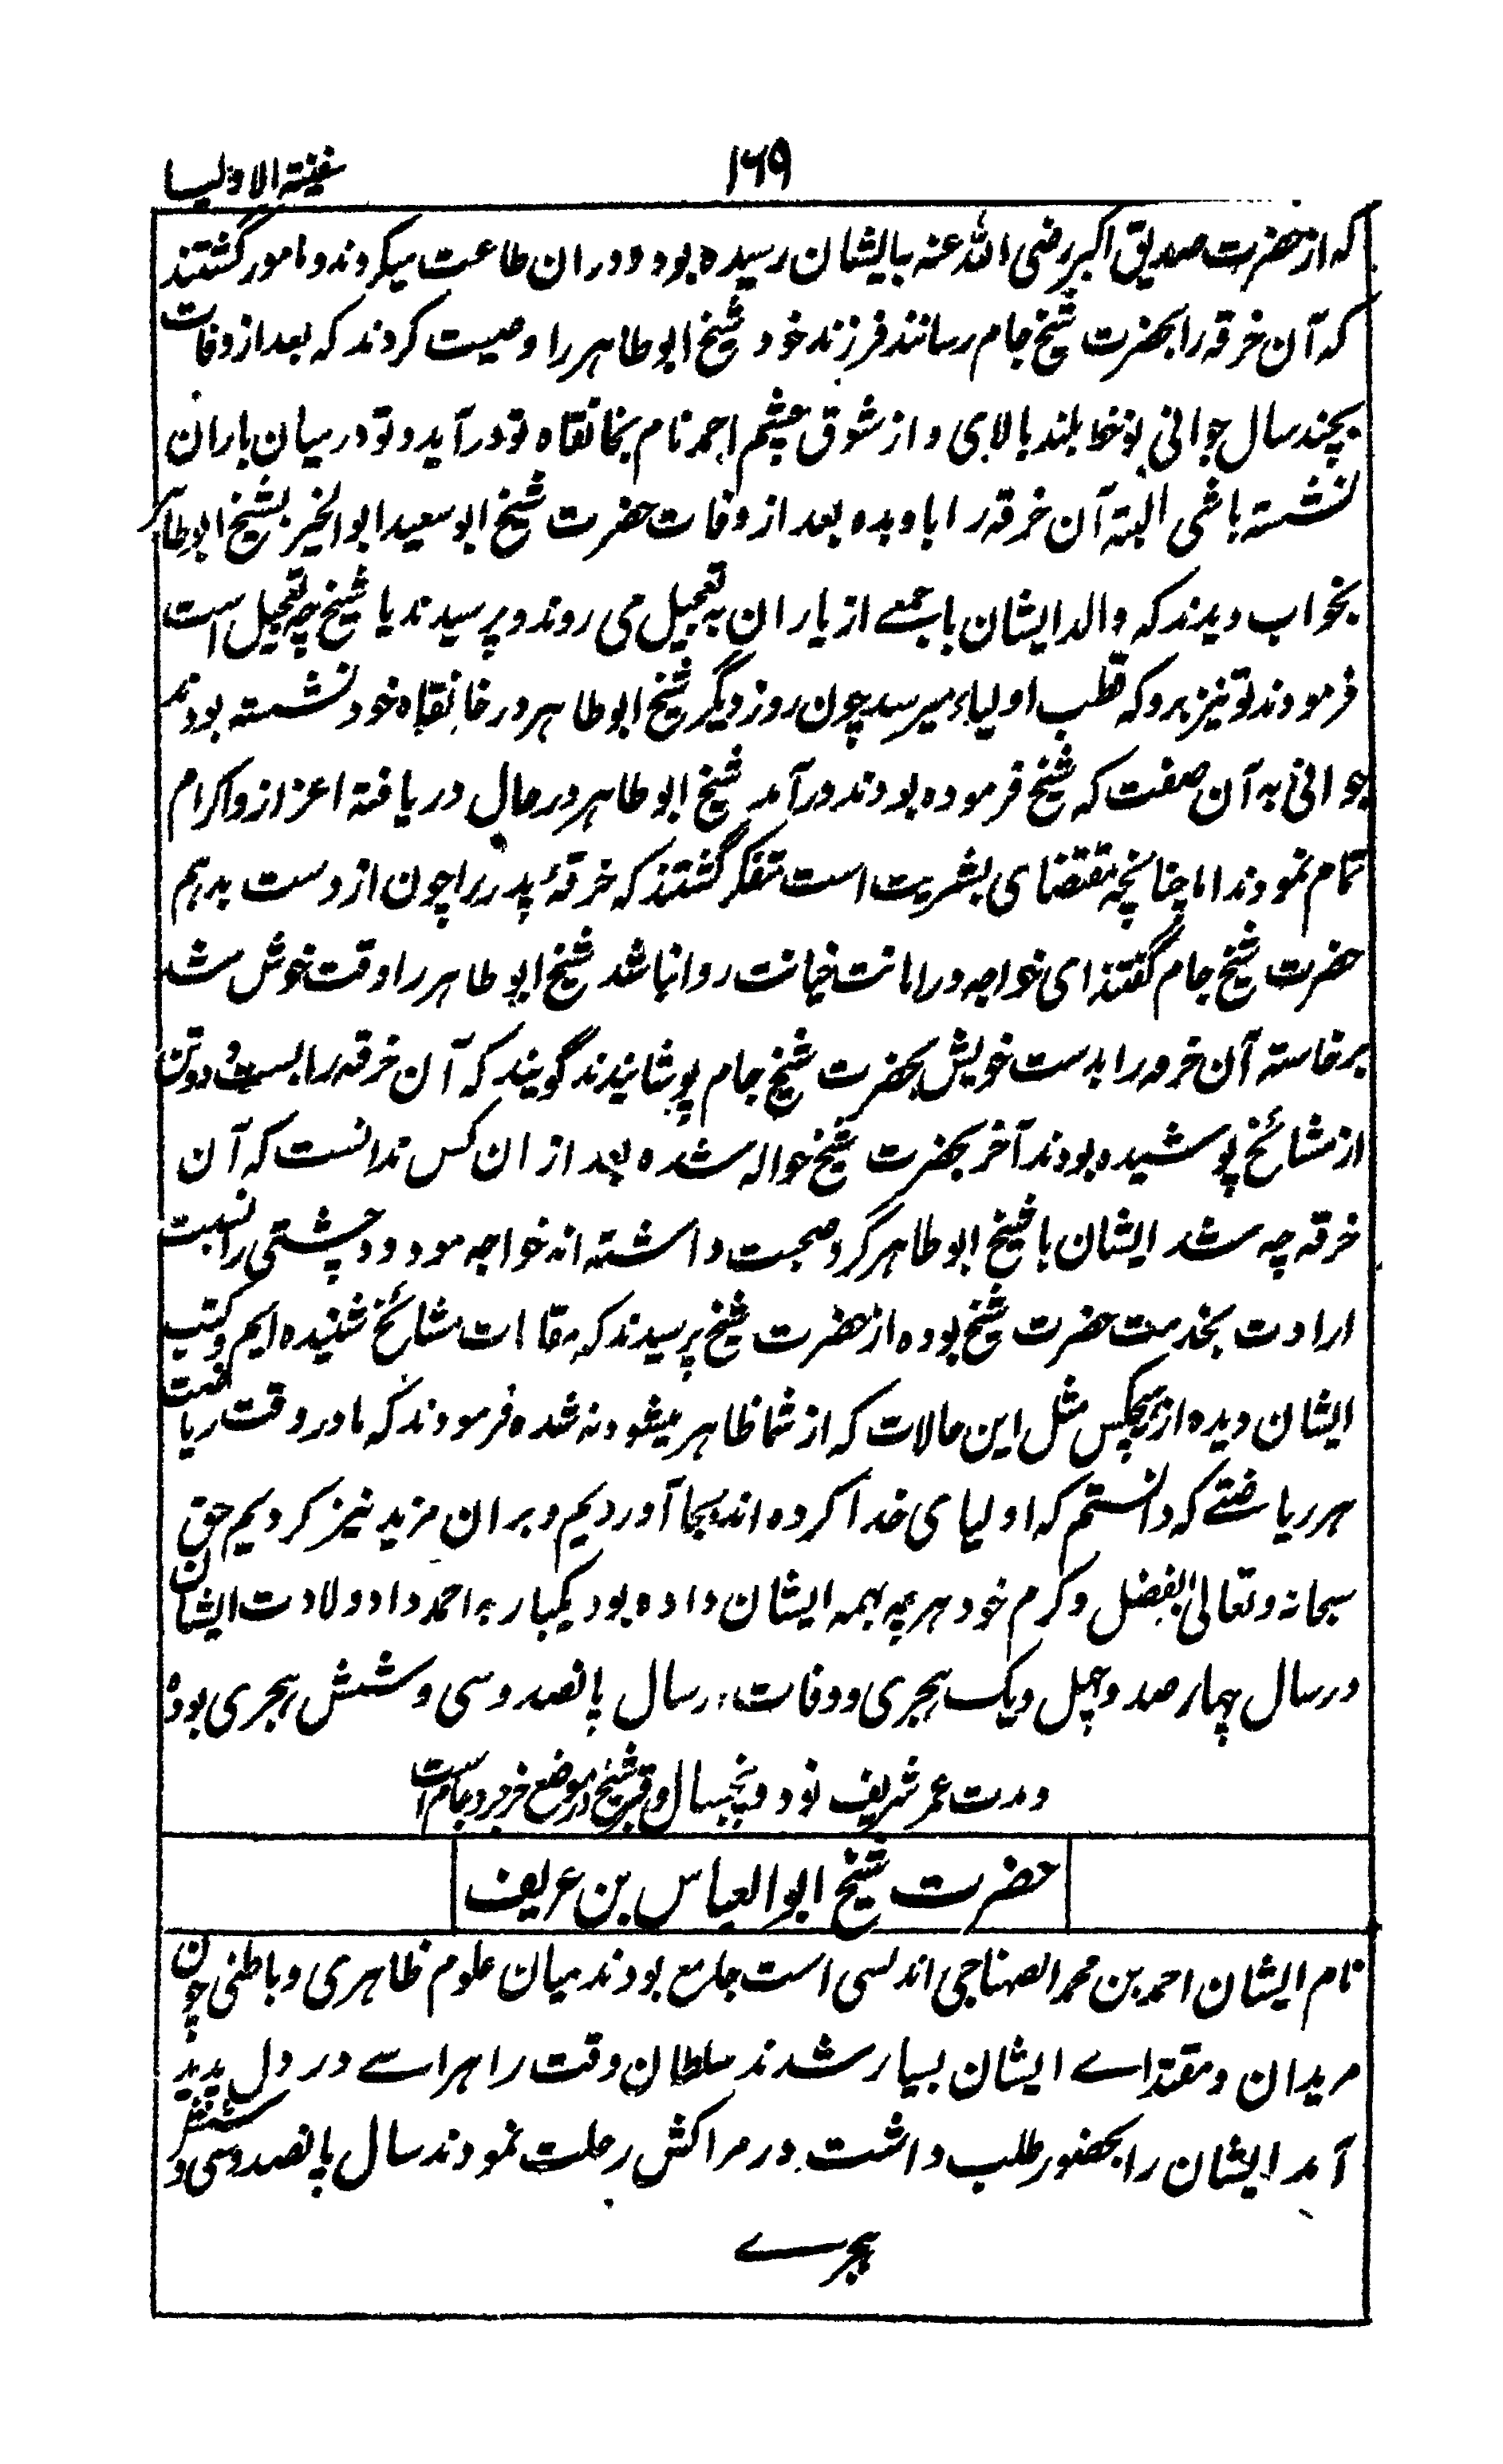 سفینة الاولیا
۱۶۹
که از حضرت صدیق اکبر رضی الله عنه بایشان رسیده بود و در ان طاعت میکردند و مامور گشتند
که آن خرقه را بحضرت شیخ جام رسانند فرزند خود شیخ ابو طاهر را وصیت کردند که بعد از وفات
بچند سال جوانی نوخط بلند بالای و ازشوق چشم احمد نام بخانقاه تو در آید و تو درمیان یاران
نشسته باشی البته آن خرقه را باو بده بعد از وفات حضرت شیخ ابو سعید ابو الخیر شیخ ابو طاهر
بخواب دیدند که والد ایشان با جمعے از یاران به تعجیل می روند و پرسیدند یا شیخ چه تعجیل است
فرمودند تو نیز برو که قطب اولیاء میرسد چون روز دیگر شیخ ابو طاهر در خانقاه خود نشسته بودند
جوانی به آن صفت که شیخ فرموده بودند در آمد شیخ ابو طاهر در حال دریافته اعزاز و اکرام
تمام نمودند اما چنانچه مقتضای بشریت است متفکر گشتند که خرقۀ پدر را چون از دست بدهم
حضرت شیخ جام گفتند ای خواجه در امانت خیانت روا نباشد شیخ ابو طاهر را وقت خوش شد
برخاسته آن خرقه را بدست خویش بحضرت شیخ جام پوشانیدند گویند که آن خرقه را بست و دو تن
از مشائخ پوشیده بودند آخر بحضرت شیخ حواله شده بعد از ان کس ندانست که آن
خرقه چه شد ایشان با شیخ ابو طاهر گرد صحبت داشته اند خواجه مودود چشتی را نسبت
ارادت بخدمت حضرت شیخ بوده از حضرت شیخ پرسیدند که مقامات مشائخ شنیده ایم و کتب
ایشان دیده از هیچکس مثل این حالات که از شما ظاهر میشود نه شده فرمودند که ما در وقت ریاضت
هر ریاضتے که دانستم که اولیای خدا کرده اند بجا آوردیم و بران مزید نیز کردیم حق
سبحانه و تعالی بفضل و کرم خود هر چه بهمه ایشان داده بود یکبار به احمد داد ولادت ایشان
در سال چهار صد و چهل و یک هجری و وفات در سال پانصد و سی و شش هجری بوده
و مدت عمر شریف نود و پنجسال و قبر شیخ در موضع خرجرد جام است
حضرت شیخ ابو العباس بن عریف
نام ایشان احمد بن محمد الصنهاجی اندلسی است جامع بودند میان علوم ظاهری و باطنی چون
مریدان و مقتداے ایشان بسیار شدند سلطان وقت را هراسے در دل پدید
آمد ایشان را بحضور طلب داشت در مراکش رحلت نمودند سال پانصد و سی و شش
هجرے